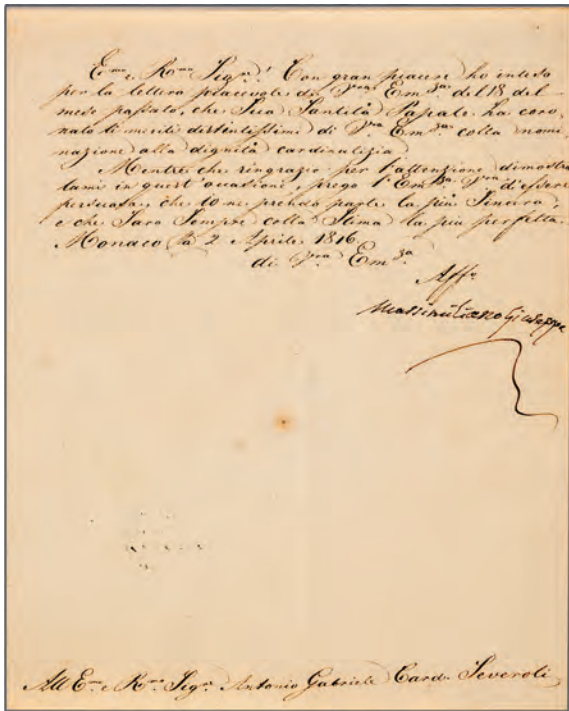 Em.mo e R.mo Sig.re! Con gran piacere ho inteso
per la lettera piacevole di V.ra Em.za del 18 del
mese passato, che Sua Santità Papale ha coro-
nato li meriti distintissimi di V.ra Em.za colla nomi-
nazione alla dignità cardinalizia.
Mentre che ringrazio per l'attenzione dimostra-
tami in quest' occasione, prego l'Em.za V.ra di essere
persuasa, che io ne prendo parte la più sincera,
e che Saro Sempre colla Stima la più perfetta.
Monaco la 2 Aprile 1816.
di V.ra Em.za
Aff.
Massimiliano Giuseppe
All' Em. e R.mo Sig.re Antonio Gabriele Card. Severoli